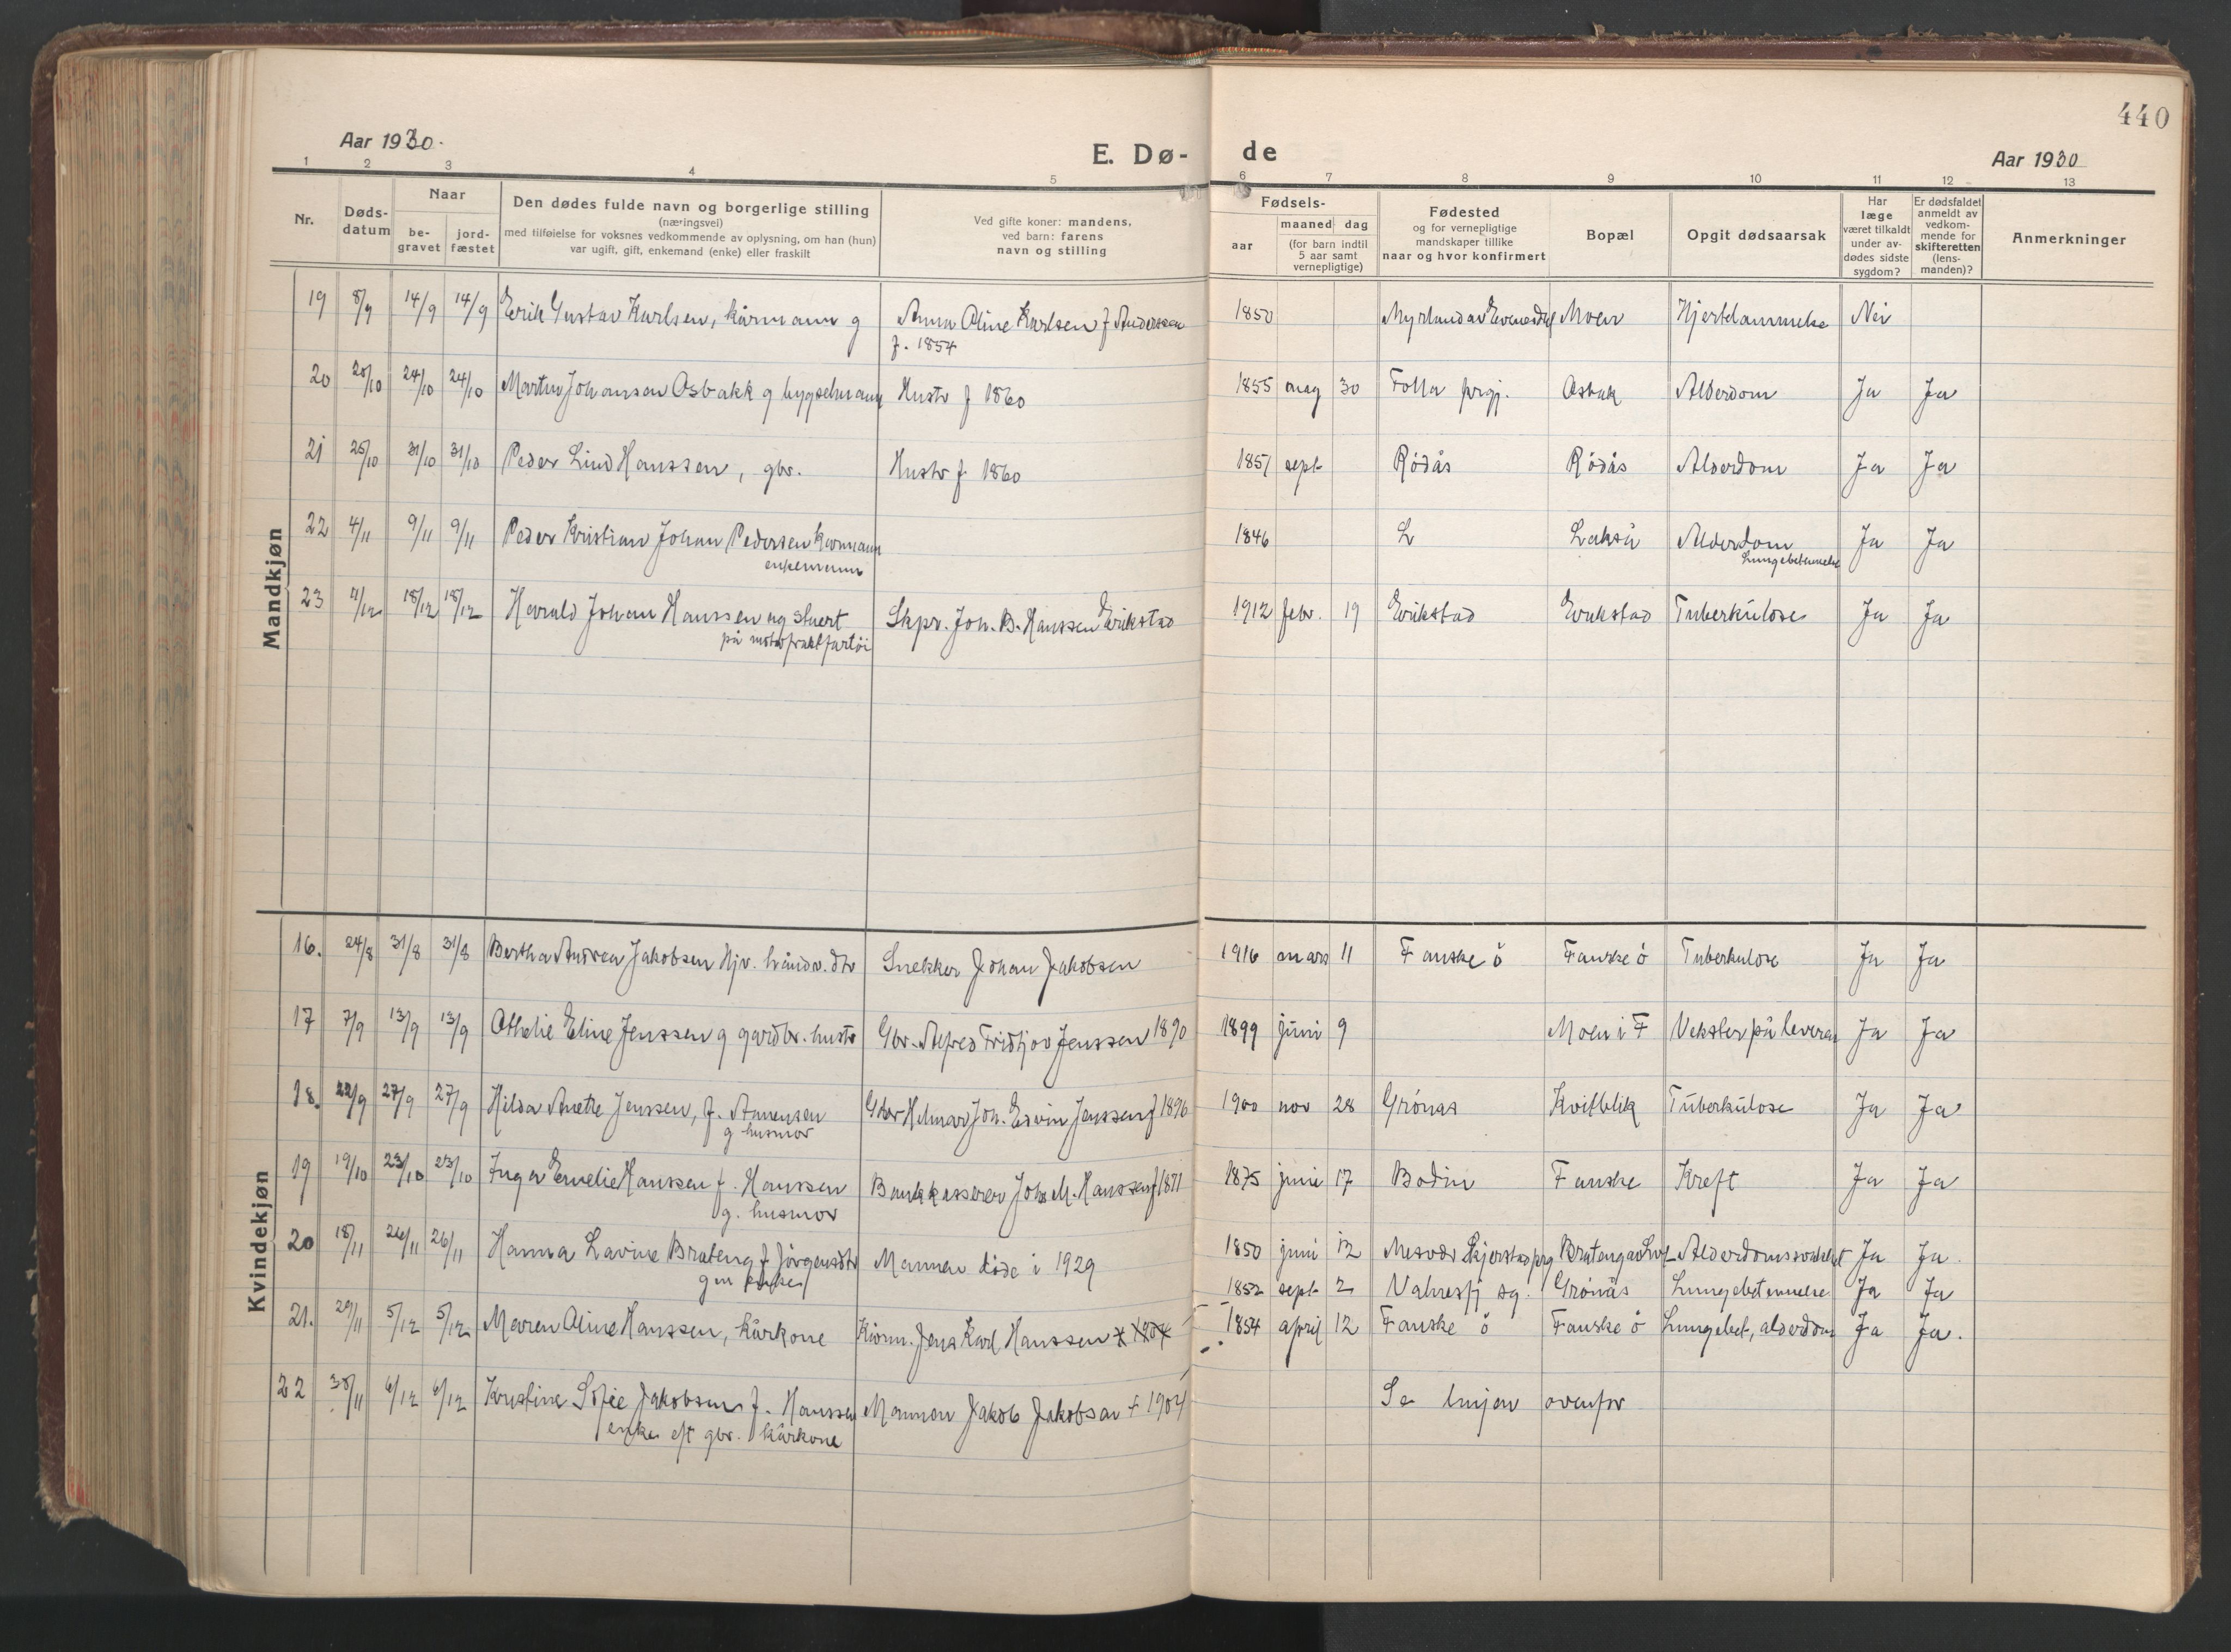 440
Aar 1930.
E. Dø-
de
Aar 1930
1 2 3 4 5 6 7 8 9 10 11 12 13
Nr.
Døds-
datum
Naar
be-
gravet
jord-
fæstet
Den dødes fulde navn og borgerlige stilling
(næringsvei)
med tilføielse for voksnes vedkommende av oplysning, om han (hun)
var ugift, gift, enkemand (enke) eller fraskilt
Ved gifte koner: mandens,
ved barn: farens
navn og stilling
Fødsels-
aar
maaned dag
(for barn indtil
5 aar samt
vernepligtige)
Fødested
og for vernepligtige
mandskaper tillike
naar og hvor konfirmert
Bopæl
Opgit dødsaarsak
Har
læge
været tilkaldt
under av-
dødes sidste
sygdom?
Er dødsfaldet
anmeldt av
vedkom-
mende for
skifteretten
(lens-
manden)?
Anmerkninger
Mandkjøn
19 8/9 14/9 14/9 Erik Gustav Karlsen, kårmann g Anna Oline Karlsen f Anderssen 1850 Myrland av Evenesdal Moen Hjertelammelse Nei
f. 1854
20 20/10 24/10 24/10 Martin Johansen Osbakk g bygselmann Hustr f 1860 1855 mag 30 Folla prgj. Osbak Alderdom Ja Ja
21 25/10 31/10 31/10 Peder Lind Hanssen, gbr. Hustr f 1860 1851 sept Rödås Rödås Alderdom Ja Ja
22 4/11 9/11 9/11 Peder Kristian Johan Pedersen karmann 1846 L Lakså Alderdom Ja Ja
enkemann Lungebetennelse
23 11/12 18/12 18/12 Harald Johan Hanssen ug stuert Skpr. Joh. B. Hanssen Erikstad 1912 febr. 19 Erikstad Erikstad Tuberkulose Ja Ja
på motorfraktfartöi
Kvindekjøn
16. 24/8 31/8 31/8 Bertha Andrea Jakobsen Hjv. håndv. dtr Snekker Johan Jakobsen 1916 mars 11 Fauske ö Fauske ö Tuberkulose Ja Ja
17 7/9 13/9 13/9 Othelie Eline Jenssen g gardbr. hustr Gbr. Alfred Fridtjov Jenssen 1890 1899 juni 9 Moen i F Vekster på leveren Ja Ja
18. 22/9 27/9 27/9 Hilda Anette Jenssen, f. Amensen Gbr Helmar Joh. Edvin Jenssen f 1896 1900 nov 28 Grönas Kvitblik Tuberkulose Ja Ja
g husmor
19 19/10 23/10 23/10 Inga Emelie Hanssen f. Hanssen Bankkasserer Joh. M. Hanssen f 1871 1875 juni 17 Bodin Fauske Kreft Ja Ja
g. husmor
20 18/11 26/11 26/11 Hanna Lavine Brateng f Jörgensdtr Mannen döde i 1929 1850 juni 12 Mesvær Skjerstad prg Brateng av Lvf Alderdomssvakhet Ja Ja.
gm enke
1852 sept 2 Valnesfj sg. Grönås Lungebetennelse Ja Ja
21. 29/11 5/12 5/12 Maren Oline Hanssen, kårkone Kårm. Jens Karl Hanssen 1854 april 12 Fauske ö Fauske ö Lungebet, alderdom Ja Ja.
22 30/11 6/12 6/12 Kristine Sofie Jakobsen f. Hanssen Mannen Jakob Jakobsen + 1904 Se linjen ovenfor
enke eft gbr. kårkone